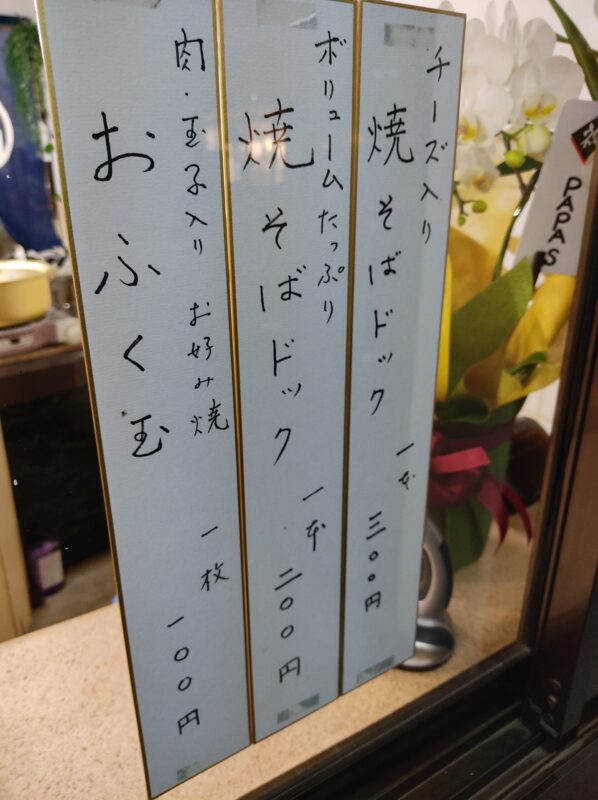 チーズ入り
焼そばドック
一本 三〇〇円
ボリュームたっぷり
焼そばドック
一本 二〇〇円
肉・玉子入り お好み焼
おふく玉
一枚 一〇〇円
PAPA S